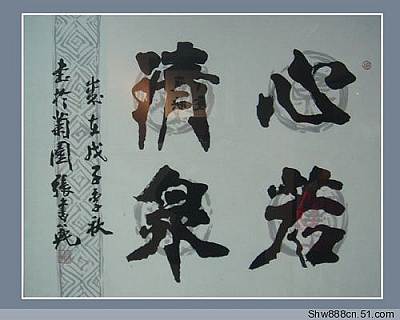 心若
清泉
歲在戊子季秋
書於菊園張書範
Shw888cn.51.com